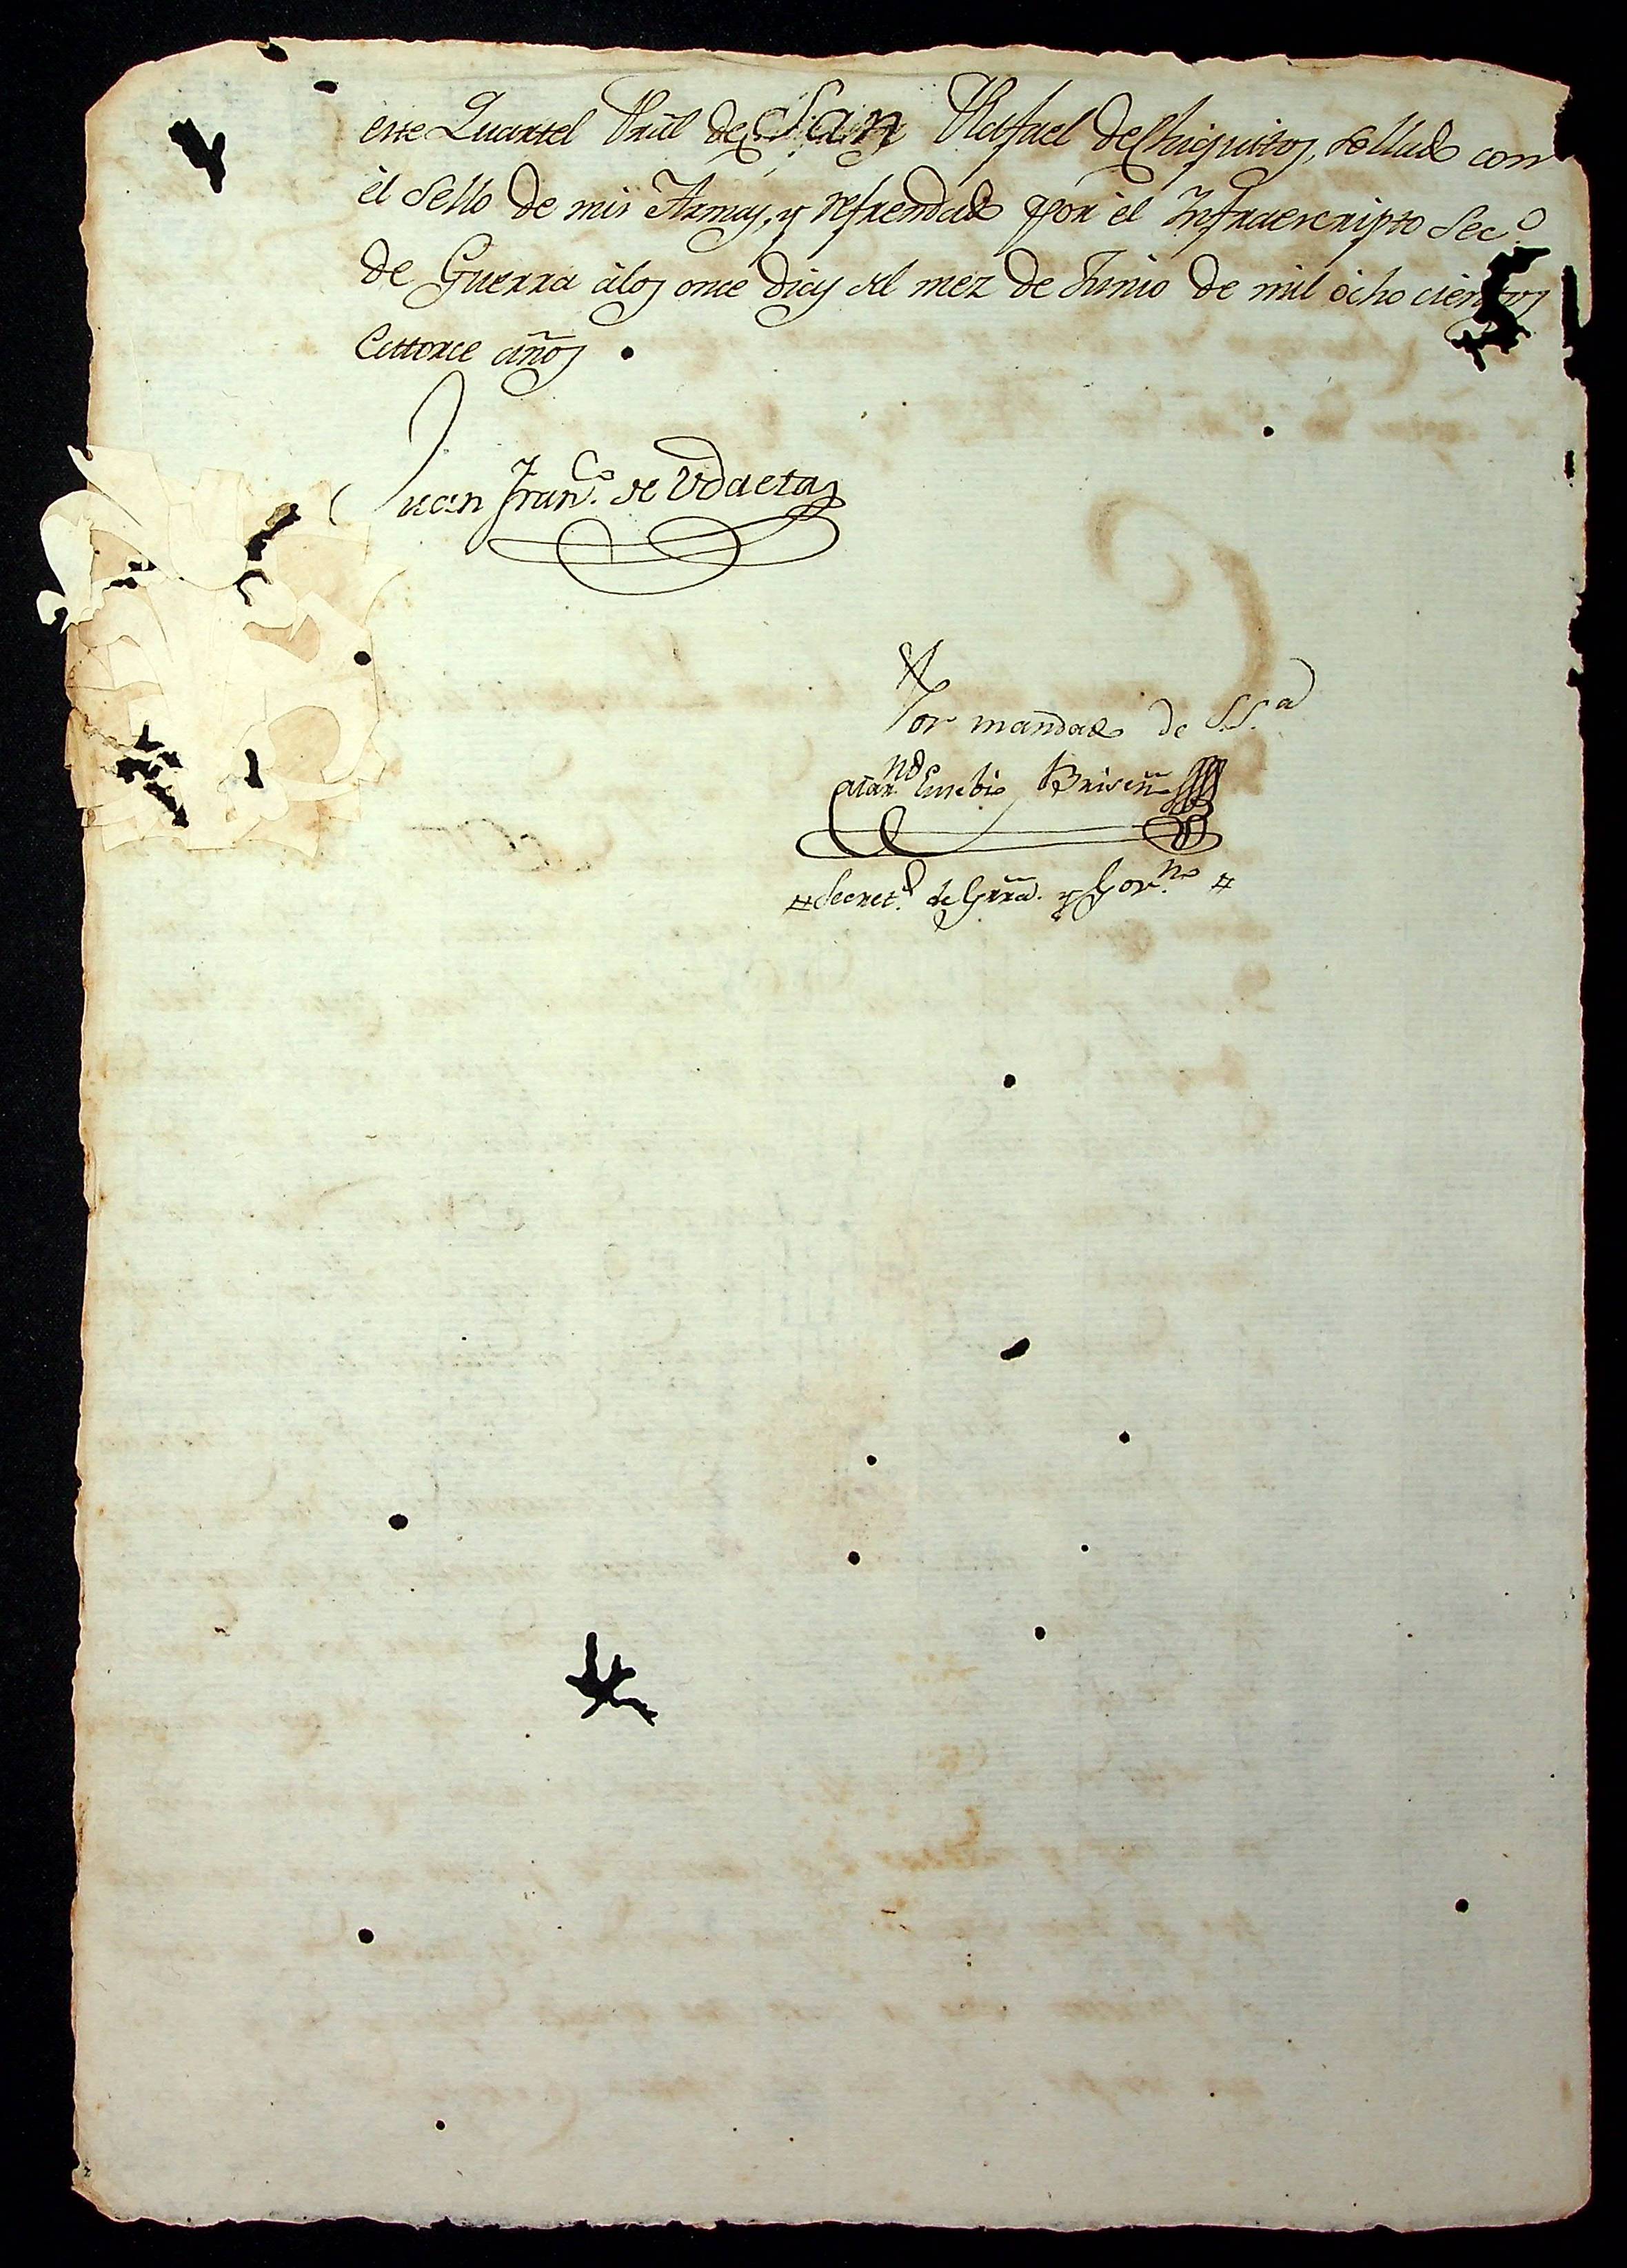 este Quartel Gral de San Rafael de Chiquitos, sellado con
el sello de mis Armas, y refrendado por el Infraescripto Sec.º
de Guerra álos once dias del mez de Junio de mil ocho cientos
Catorce años
Juan Fran.co de Udaeta
Por mandado de S.S.a
Eusebio Briseño
Secret.º de Grra. y Govno